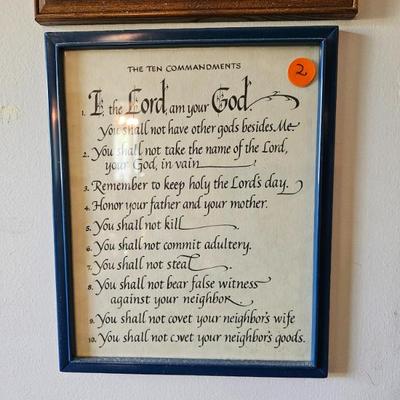 THE TEN COMMANDMENTS
2
1. I, the Lord, am your God.
You shall not have other gods besides Me
2. You shall not take the name of the Lord,
your God, in vain
3. Remember to keep holy the Lord's day.
4. Honor your father and your mother.
5. You shall not kill
6. You shall not commit adultery.
7. You shall not steal
8. You shall not bear false witness
against your neighbor.
9. You shall not covet your neighbor's wife
10. You shall not covet your neighbor's goods.